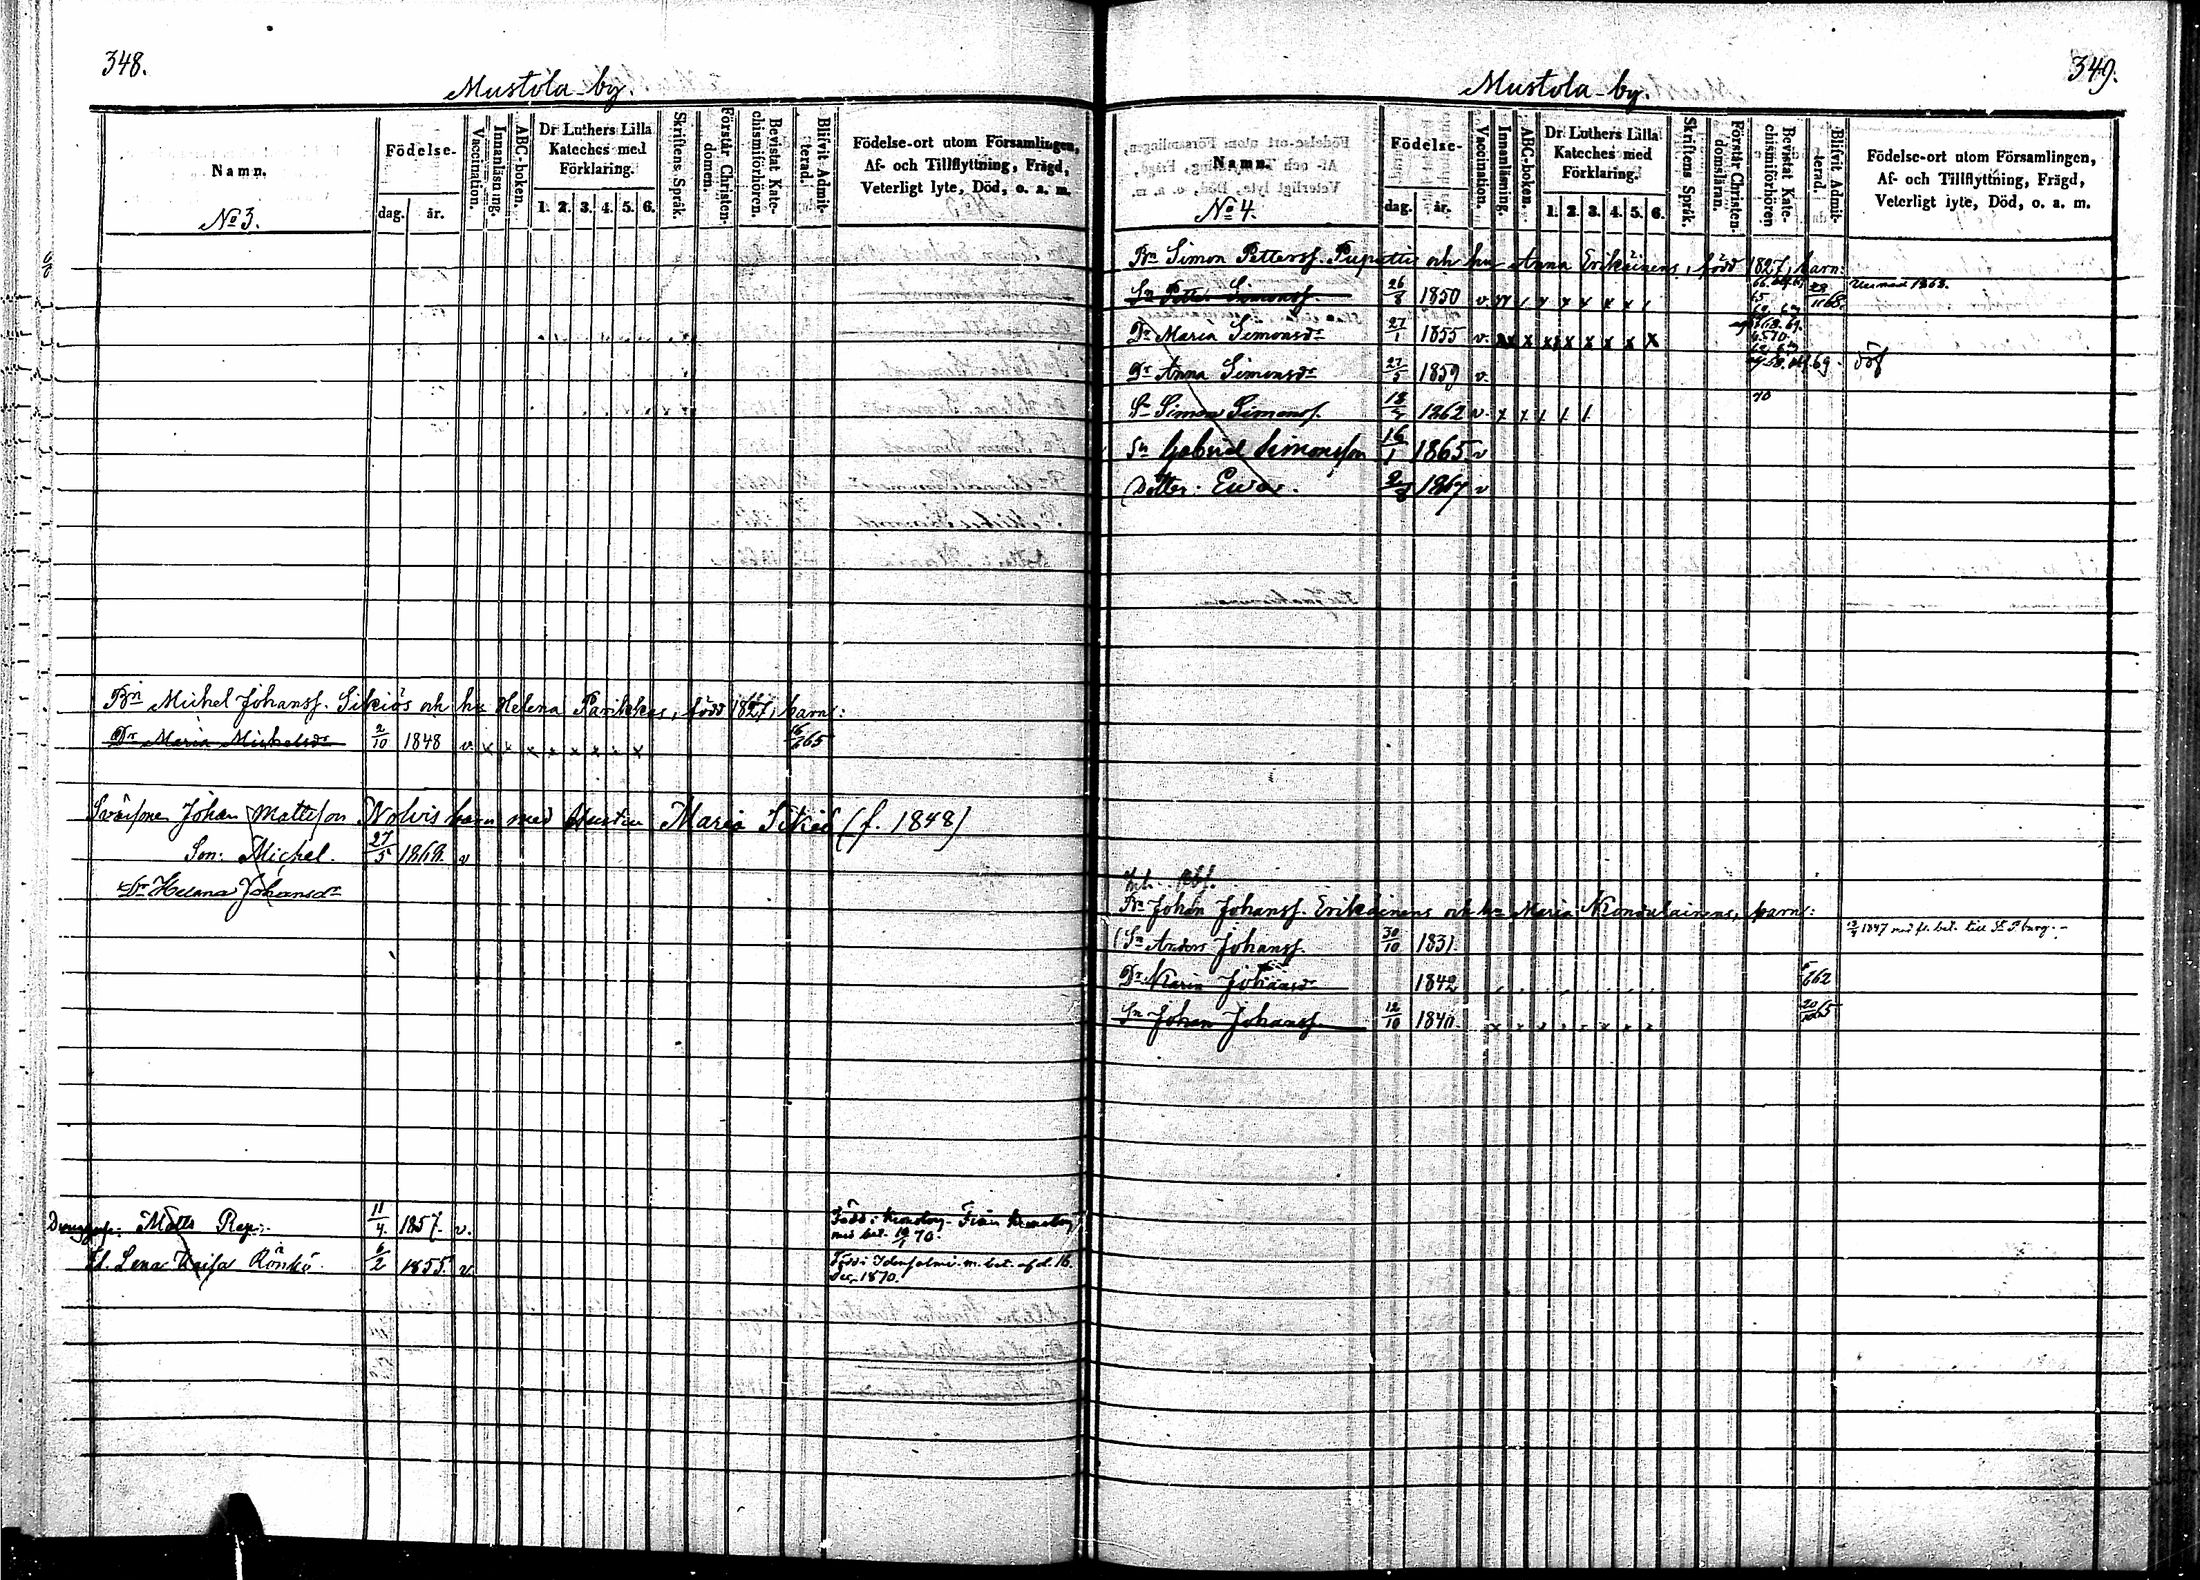 348.
Mustola by.
Namn.
Födelse-
dag. år.
Vaccination.
Innanläsning.
ABC-boken.
Dr Luthers Lilla
Kateches med
Förklaring.
1. 2. 3. 4. 5. 6.
Skriftens Språk.
Förstår Christen-
domen.
Bevistat Kate-
chismiförhören.
Blifvit Admit-
terad.
Födelse-ort utom Församlingen,
Af- och Tillflyttning, Frägd,
Veterligt lyte, Död, o. a. m.
No 3.
Bn Michel Johansf. Sikiös och hu Helena Parikkas, född 1827, barn:
Dr Maria Michelsdr 2/10 1848 v x x x x x x x x 65
Johan Mattsson Nohvis barn med Hustru Maria Sikiö (f. 1848)
Son: Michel. 27/5 1868. v
Dr Helena Johansdr
Matts Rep. 11/4 1857. v.
Född i
med bet. 70.
Lena Kaisa Rönkö 6/2 1855. v
Född i Idensalmi m. bet. af d. 16
Dec. 1870.
349.
Mustola by.
Namn.
Födelse-
dag. år.
Vaccination.
Innanläsning.
ABC-boken.
Dr Luthers Lilla
Kateches med
Förklaring.
1. 2. 3. 4. 5. 6.
Skriftens Språk.
Förstår Christen-
domsläran.
Bevistat Kate-
chismiförhören
Blifvit Admit-
terad.
Födelse-ort utom Församlingen,
Af- och Tillflyttning, Frägd,
Veterligt lyte, Död, o. a. m.
No 4.
Bn Simon Pettersf. Pupattis och hu Anna Erikäinens, född 1827, barn:
Sn Petter Simonsf. 26/8 1850 v. 68. 1868.
Dr Maria Simonsdr 27/1 1855 v. x x x x x x x x 70.
Dr Anna Simonsdr 27/5 1859 v. 69. döf
70
Sn Simon Simonsf. 1862 v.
Sn Gabriel Simonsson 16/1 1865 v
Dotter. Eva. 1867 v
Bn Johan Johansf. Erikäinens och hu Maria barn:
Sn Anders Johansf. 30/10 1831. 1847 med bet. till S:t P:burg.
Dr Maria Johansdr 1842 62
Sn Johan Johansf. 12/10 1840. 65